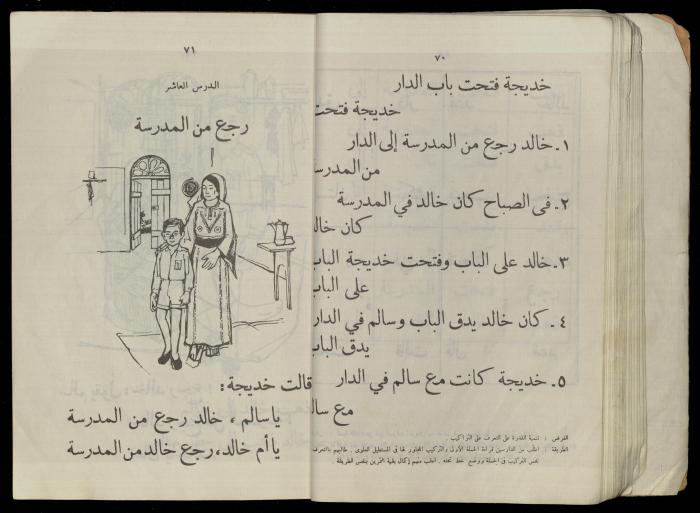 ٧٠
خديجة فتحت باب الدار
خديجة فتحت
١. خالد رجع من المدرسة إلى الدار
من المدرس
٢. في الصباح كان خالد في المدرسة
كان خال
٣. خالد على الباب وفتحت خديجة الباب
على الباب
٤. كان خالد يدق الباب وسالم في الدار
يدق الباب
٥. خديجة كانت مع سالم في الدار
مع سال
الغرض : تنمية القدرة على التعرف على التراكيب .
الطريقة : اطلب من الدارسين قراءة الجملة الأولى والتركيب المجاور لها في المستطيل العلوي . طالبهم بالتعرف
نفس التركيب في الجملة ووضع خط تحته . اطلب منهم إكمال بقية التمرين بنفس الطريقة .
٧١
الدرس العاشر
رجع من المدرسة
قالت خديجة :
يا سالم ، خالد رجع من المدرسة
يا أم خالد، رجع خالد من المدرسة